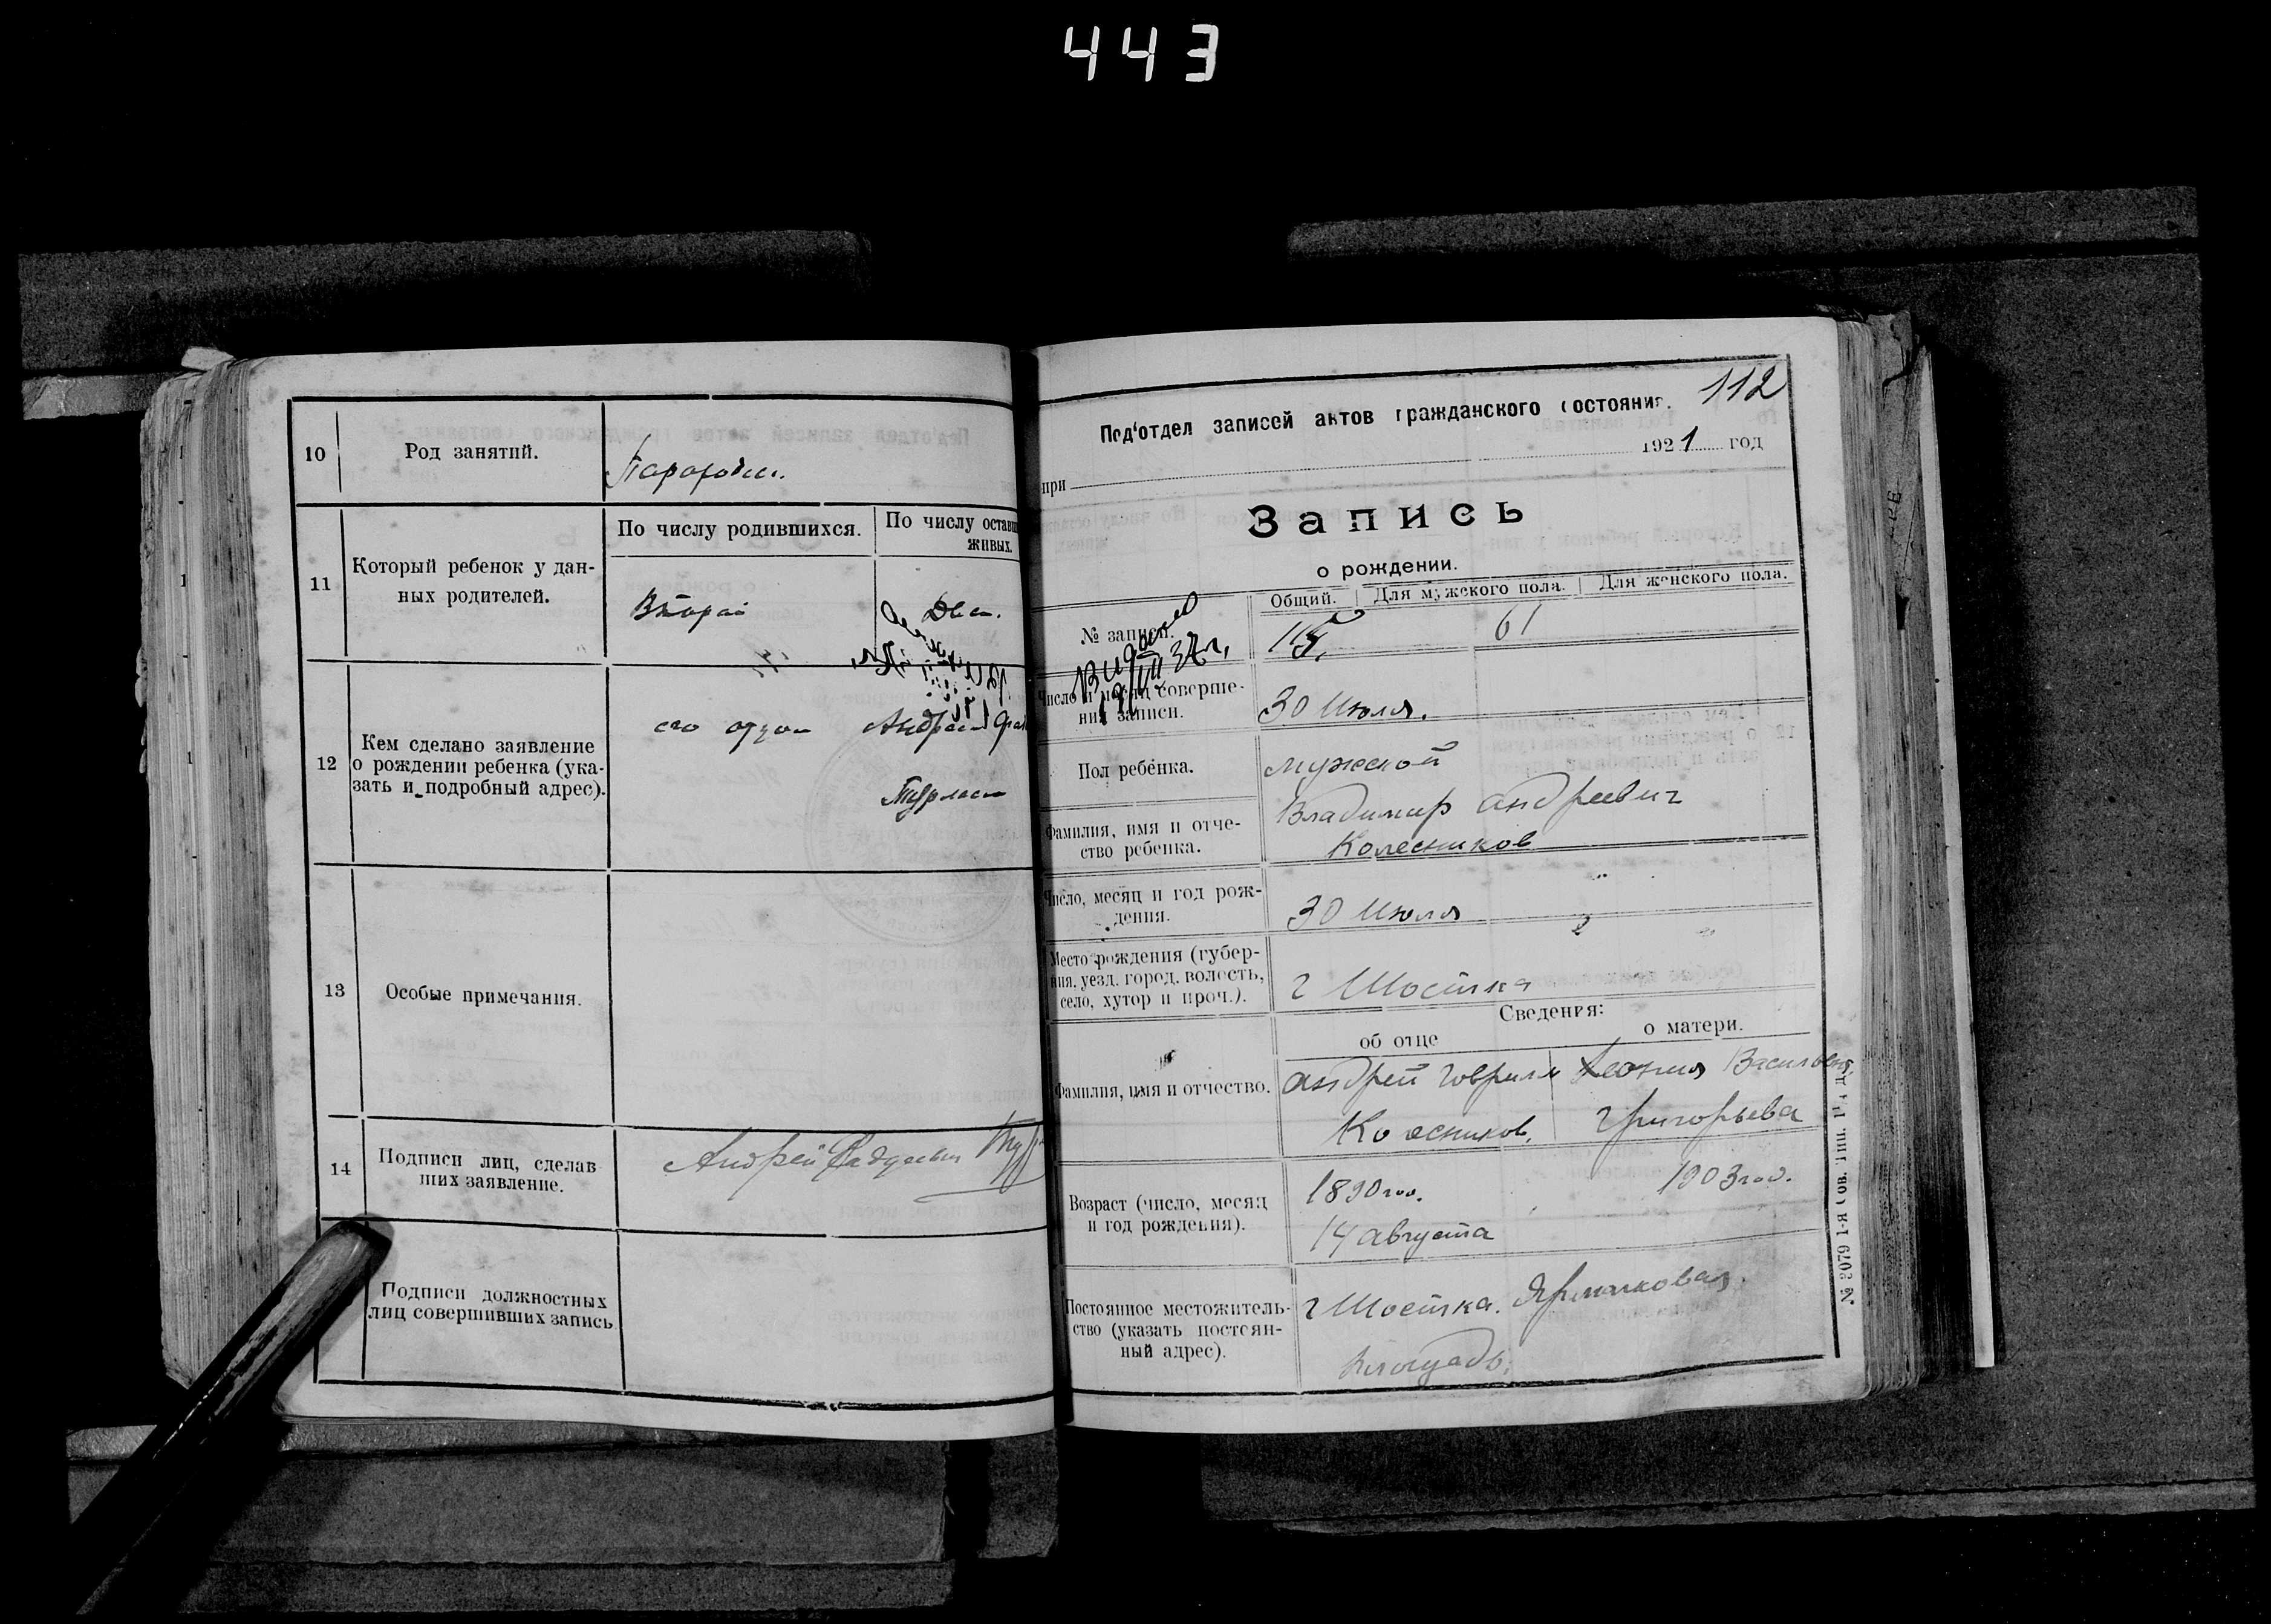 443
10
Род занятий.
11
Который ребенок у дан-
ных родителей.
По числу родившихся.
По числу оставш
живых.
Второй
Два.
12
Кем сделано заявление
о рождении ребенка (ука-
зать и подробный адрес).
его отцом Андреем
13
Особые примечания.
14
Подписи лиц, сделав
ших заявление.
Андрей
Подписи должностных
лиц совершивших запись
112
Под'отдел записей актов гражданского состояния.
при 1921 год
Запись
о рождении.
Общий. Для мужского пола. Для женского пола.
№ записи.
61
Число и месяц соверше-
ния записи.
30 Июля.
Пол ребенка.
мужской
Фамилия, имя и отче-
ство ребенка.
Владимир Андреевич
Колесников
Число, месяц и год рож-
дения.
30 Июля
Место рождения (губер-
ния, уезд, город, волость,
село, хутор и проч.).
г Шостка
Сведения:
об отце
о матери.
Фамилия, имя и отчество.
Андрей
Колесников.
Григорьева
Возраст (число, месяц
и год рождения).
1890 год.
14 августа
1903 год.
Постоянное местожитель-
ство (указать постоян-
ный адрес).
г Шостка. Ярмалковая
площадь.
№ 2079 1-я Сов. тип.